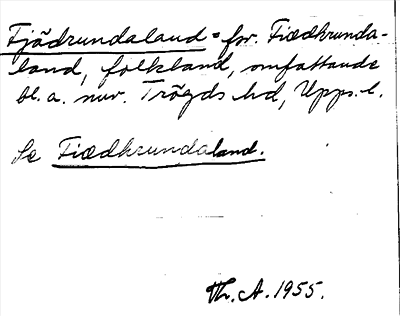 Fjädrundaland = för. Fiædhrunda-
land, folkland, omfattande
bl. a. nuv. Trögds hd, Upps. l.
Se Fiædhrundaland.
Th. A. 1955.